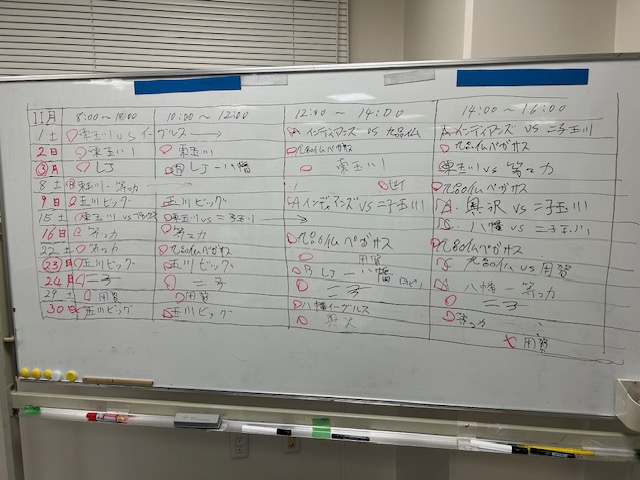 11月 8:00～10:00 10:00～12:00 12:00～14:00 14:00～16:00
1土 東玉川 vs イーグルス → A インディアンズ vs 九品仏 A インディアンズ vs 二子玉川
2日 東玉川 東玉川 九品仏ペガサス 九品仏ペガサス
3月 LJ B LJ－八幡 東玉川 東玉川 vs 等々力
8土 東玉川－等々力 → 九品仏ペガサス
9日 玉川ビッグ 玉川ビッグ A インディアンズ vs 二子玉川 A. 奥沢 vs 二子玉川
15土 東玉川 vs 東玉川 vs 二子玉川 → 八幡 vs 二子玉川
16日 等々力 等々力 九品仏ペガサス 九品仏ペガサス
22土 等々力 九品仏ペガサス 用賀 九品仏 vs 用賀
23日 玉川ビッグ 玉川ビッグ B LJ－八幡 八幡－等々力
24月 二子 二子 二子 二子
29土 用賀 用賀 八幡イーグルス 等々力
30日 玉川ビッグ 玉川ビッグ 用賀